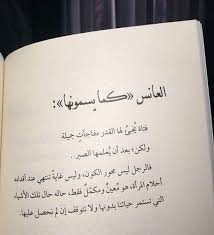 العانس «كما يسمونها»:
فتاة يُخبئ لها القدر مفاجآتٍ جميلة
ولكن؛ بعد أن يُعلمها الصبر..
فالرجل ليس محور الكون، وليس غايةً تنتهي عند أقدامه
أحلام المرأة، هو مُعينٌ ومكمّلٌ فقط، حاله حال تلك الأشياء
التي تستمر حياتنا بدونها ولا تتوقف إن لم نحصل عليها.